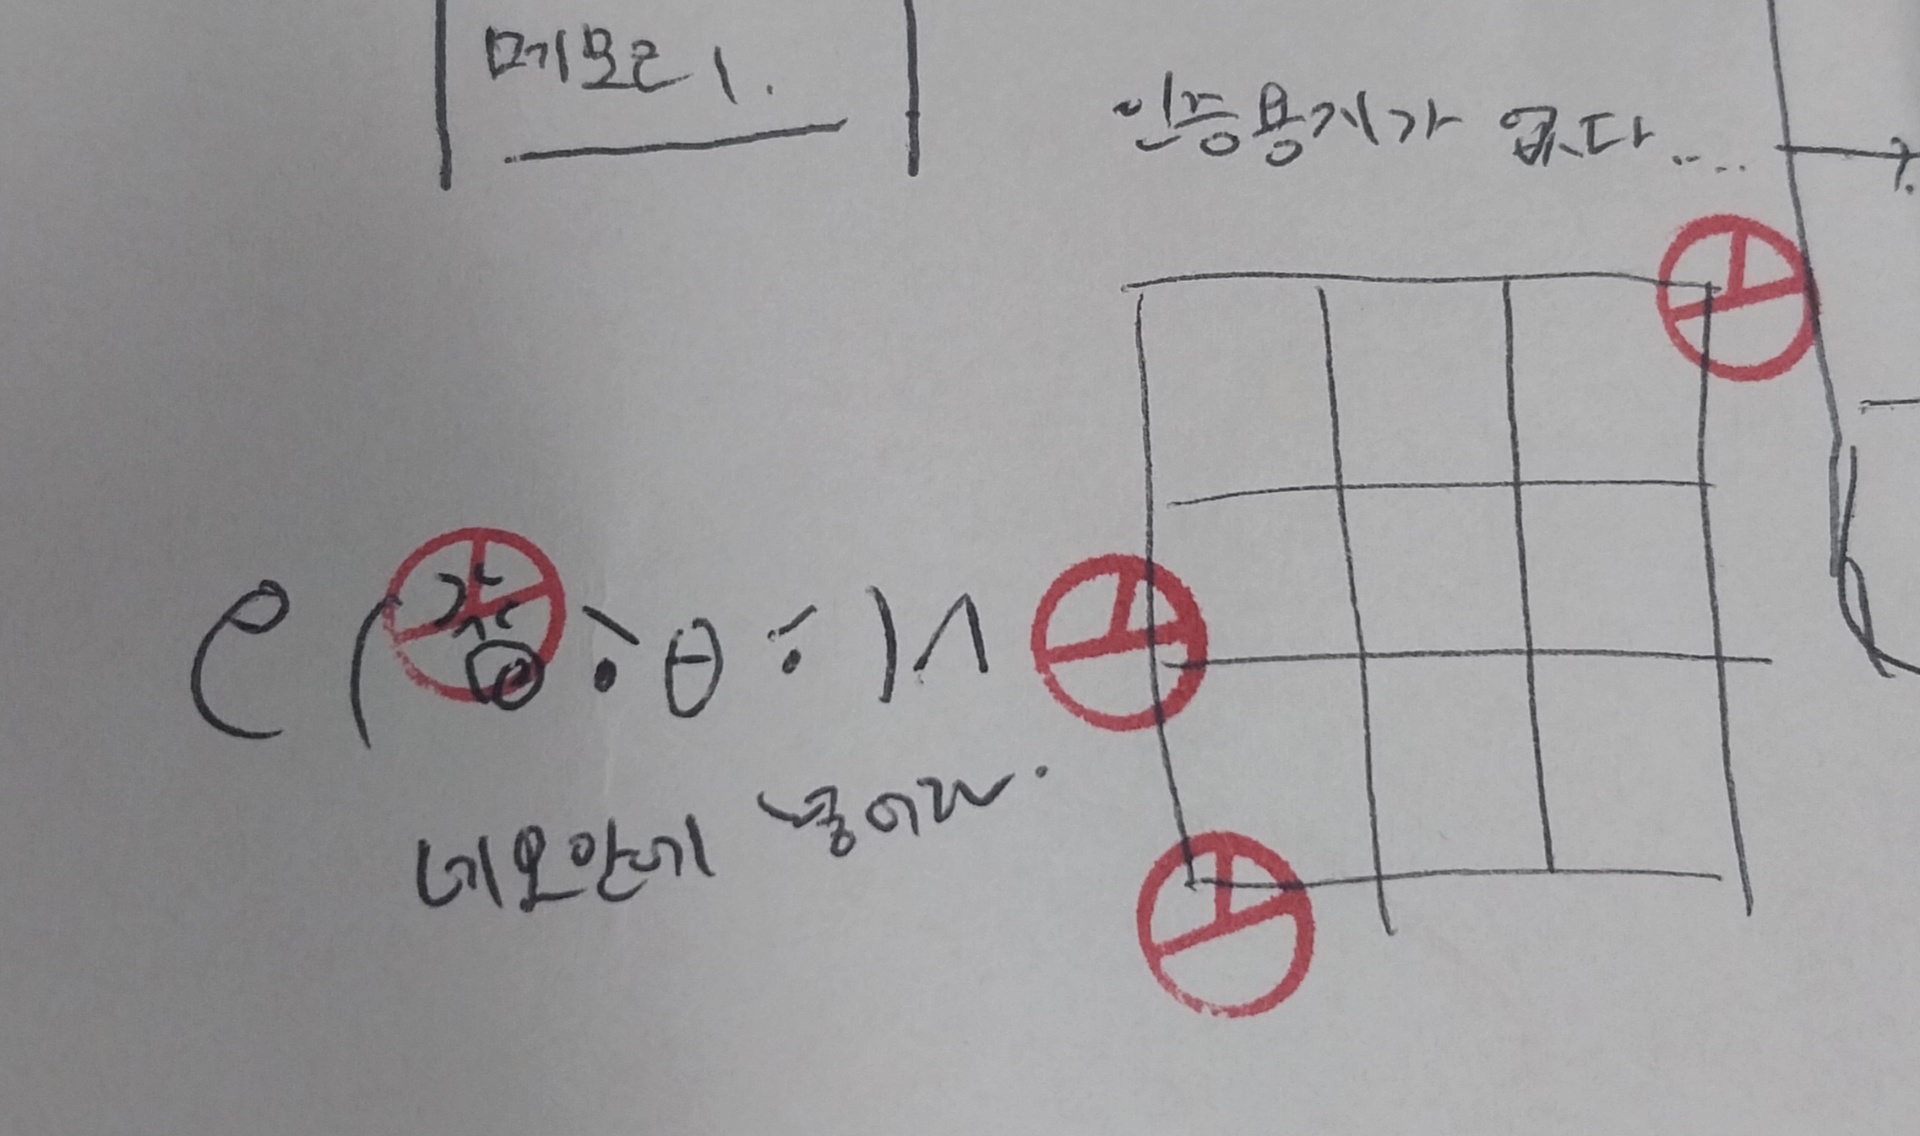 메모리 1.
인증용지가 없다.....
네모안에 넣어라.